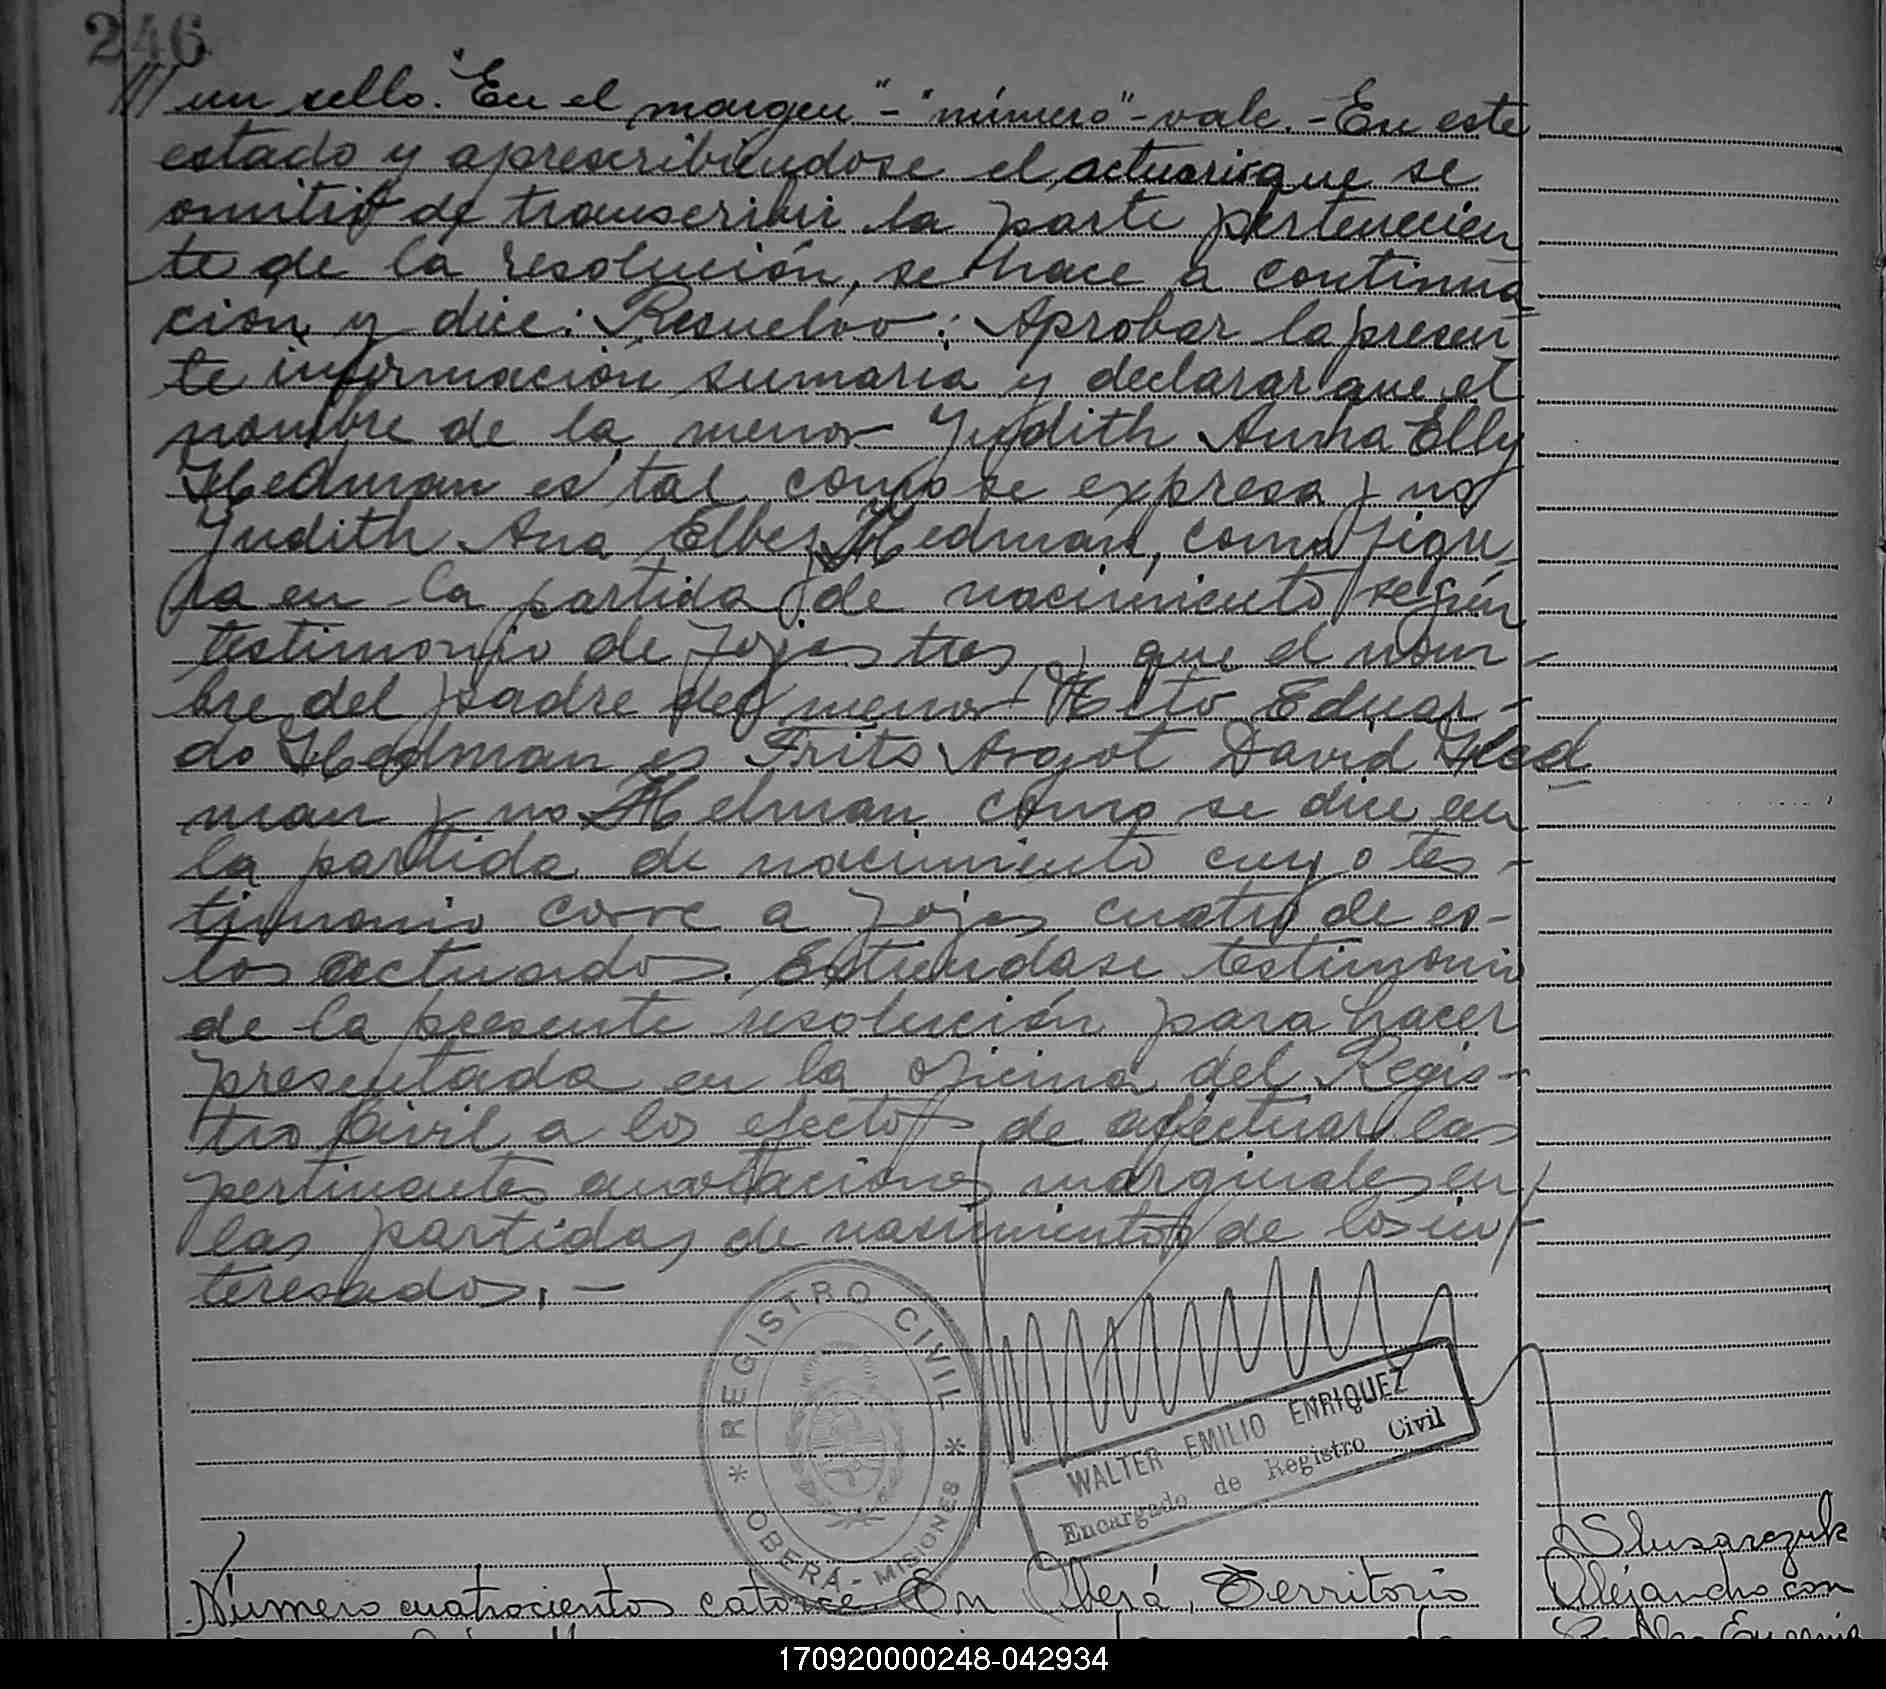 246
/// un sello. "En el margen" - "número" - vale. - En este
estado y aprescribiendose el actuario que se
omitió de transcribir la parte pertenecien
te de la resolución, se hace a continua
ción y dice: Resuelvo: Aprobar la presen
te información sumaria y declarar que el
nombre de la menor Judith Anna Elly
Hedman es tal como se expresa y no
Judith Ana Elbez Hedman, como figu
ra en la partida de nacimiento según
testimonio de fojas tres y que el nom-
bre del padre del menor Elto Eduar-
do Hedman es Frits Argot David Hed
man y no Helman como se dice en
la partida de nacimiento cuyo tes-
timonio corre a fojas cuatro de es-
tos actuados. Extiendase testimonio
de la presente resolución para hacer
presentada en la oficina del Regis-
tro Civil a los efectos de afectuar las
pertinentes anotaciones marginales en
las partidas de nasimientos de los in-
teresados. -
REGISTRO CIVIL
* OBERÁ - MISIONES *
WALTER EMILIO ENRIQUEZ
Encargado de Registro Civil
Número cuatrocientos catorce. En Oberá, Territorio
Slusarczuk
Alejandro con
170920000248-042934